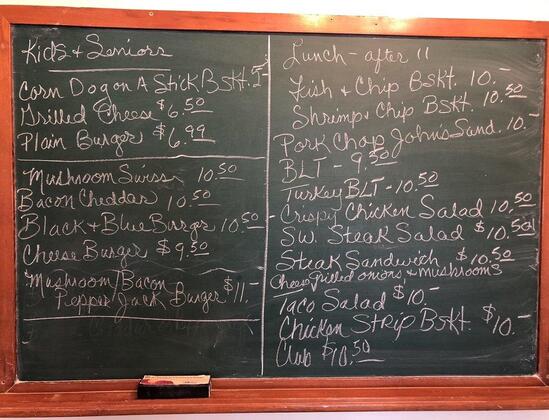 Kids + Seniors
Corn Dog on A Stick Bskt. 5-
Grilled Cheese $6.50
Plain Burger $6.99
Mushroom Swiss 10.50
Bacon Cheddar 10.50
Black + Blue Burger 10.50
Cheese Burger $9.50
Mushroom/Bacon
Pepper/Jack Burger $11.-
Lunch - after 11
Fish + Chip Bskt. 10.-
Shrimp + Chip Bskt. 10.50
Pork Chop John's Sand. 10.-
BLT - 9.50
Turkey BLT - 10.50
Crispy Chicken Salad 10.50
SW. Steak Salad $10.50
Steak Sandwich $10.50
Cheese, grilled onions + mushrooms
Taco Salad $10.-
Chicken Strip Bskt. $10.-
Club $10.50